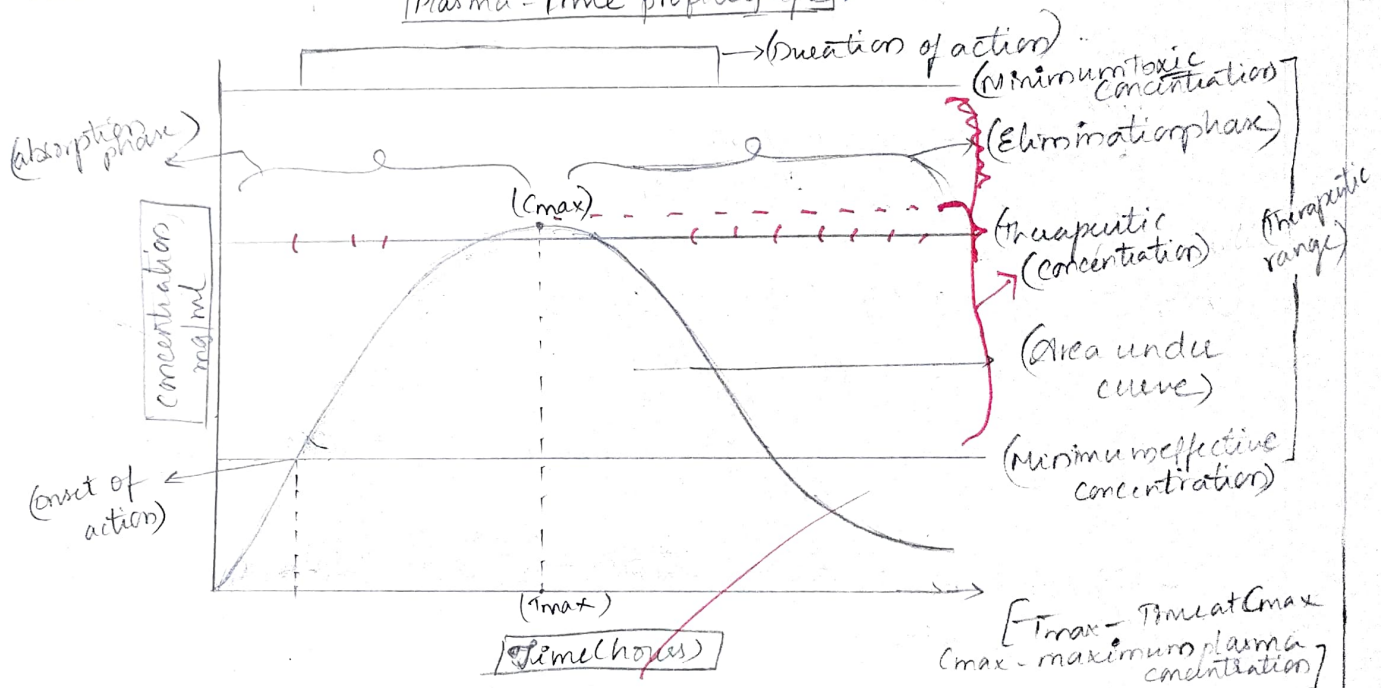 Plasma-Time profile
(Duration of action)
(Minimum toxic
concentration)
(absorption
phase)
(Elimination phase)
(Cmax)
(Therapeutic
(concentration)
(therapeutic
range)
concentration
mg/ml
(Area under
curve)
(Minimum effective
concentration)
(onset of
action)
(Tmax)
Time(hours)
[Tmax - Time at Cmax
Cmax - maximum plasma
concentration]